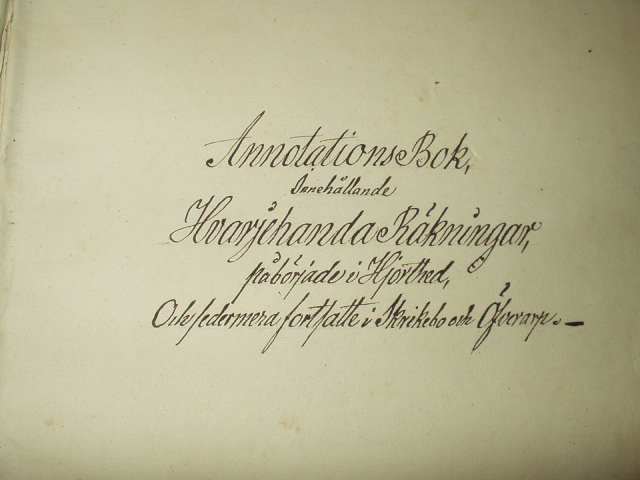 AnnotationsBok,
Innehållande
Hvarjehanda Räkningar,
påbörjade i Hjorthed,
Och sedermera fortsatte i Skrikebo och Öfverarp. —